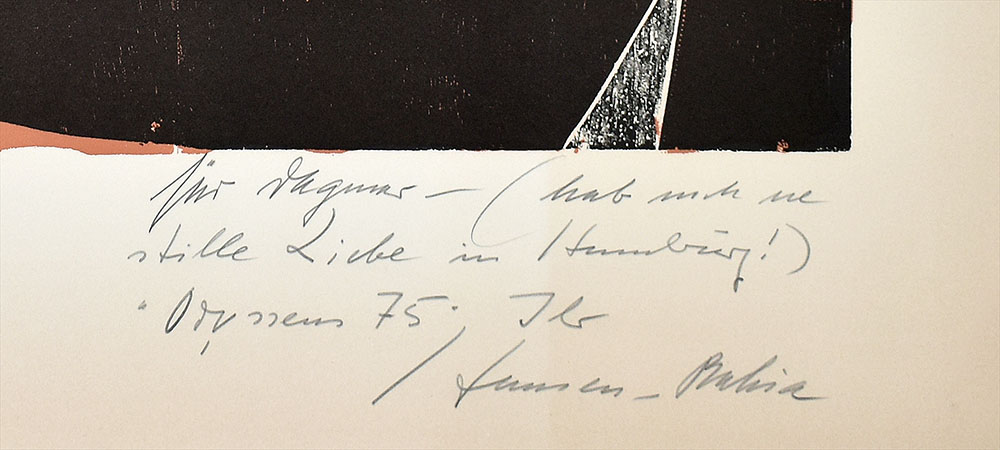 für Dagmar – (hab noch ne
stille Liebe in Hamburg!)
"Odysseus 75", Ihr
Hansen-Bahia